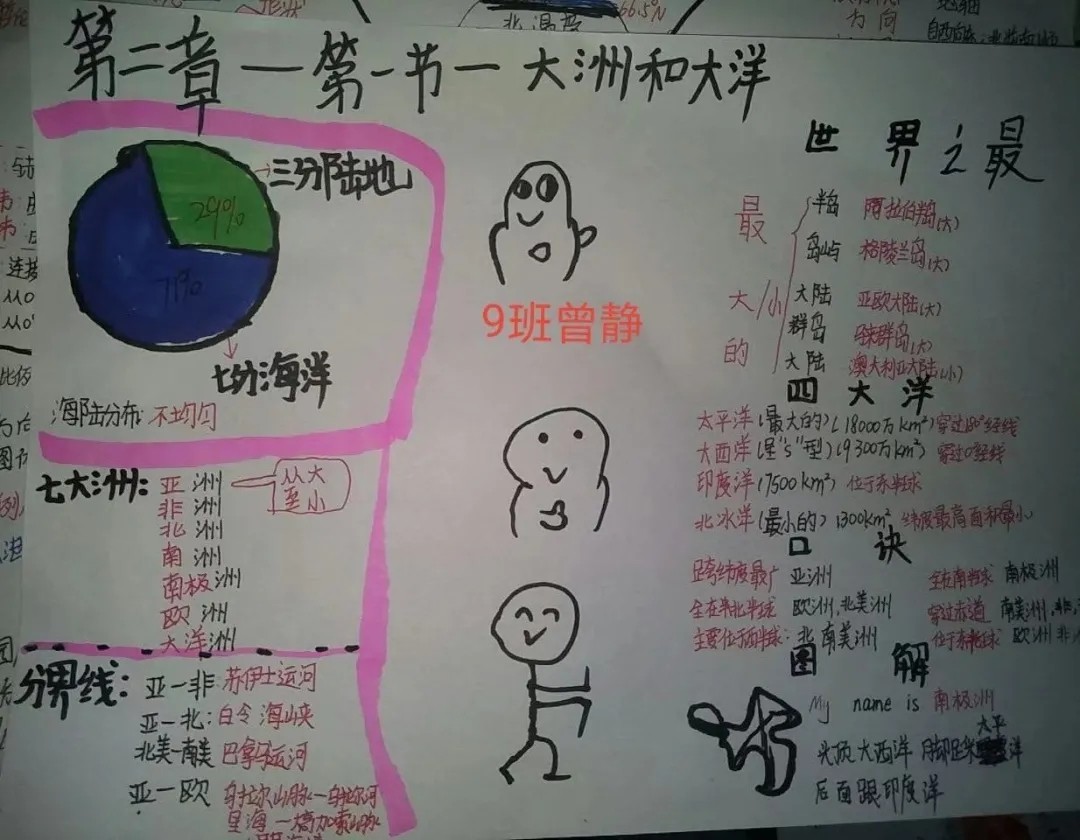 第二章一第一节一大洲和大洋
三分陆地
29%
71%
七分海洋
海陆分布:不均匀
七大洲:亚洲
从大至小
非洲
北洲
南洲
南极洲
欧洲
大洋洲
分界线:亚一非 苏伊士运河
亚一北:白令海峡
北美-南美 巴拿马运河
亚一欧 乌拉尔山脉一乌拉尔河
里海一大高加索山脉
9班曾静
世界之最
最大/小的
半岛 阿拉伯半岛(大)
岛屿 格陵兰岛(大)
大陆 亚欧大陆(大)
群岛 马来群岛(大)
大陆 澳大利亚大陆(小)
四大洋
太平洋(最大的)(18000万km²)穿过180°经线
大西洋(呈"S"型)(9300万km²) 穿过0°经线
印度洋(7500km²) 位于东半球
北冰洋(最小的) 1300km² 纬度最高面积最小
口诀
跨纬度最广 亚洲
全在南半球 南极洲
全在北半球 欧洲,北美洲
穿过赤道 南美洲,非
主要位于西半球:北南美洲
位于东半球 欧洲 非
图解
My name is 南极洲
头顶大西洋 脚踩太平洋
后面跟印度洋
北温带
66.5°N
形状
为向
地轴